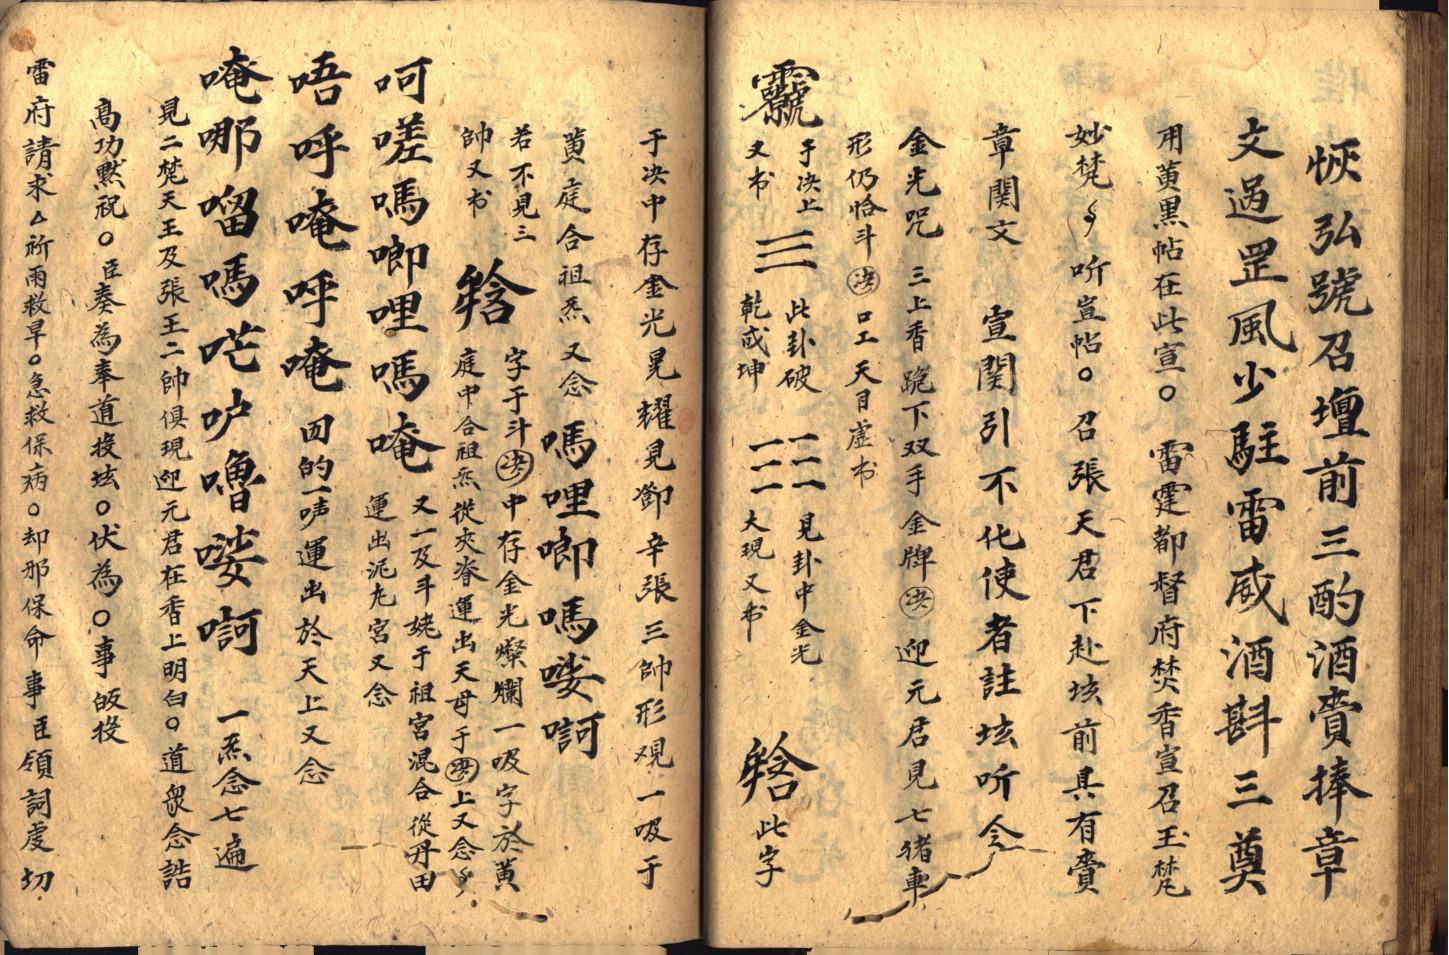 恢弘號召壇前三酌酒賫捧章
文過罡風少駐雷威酒斟三奠
用黄黒帖在此宣○ 雷霆都督府焚香宣召玉梵
妙梵 听宣帖○召張天君下赴垓前具有賫
章関文 宣関引不化使者註垓听令
金光咒 三上香跪下双手金牌決迎元君見七猪車
形仍恰斗決口工天目虚书
于决上
又书
此卦破
乾成坤
見卦中金光
大現又书
此字
于决中存金光晃耀見鄧辛張三帥形现一吸于
黄庭合祖炁又念嗎哩唧嗎嘙㗿
若不見三
帥又书
字于斗決中存金光燦爛一吸字於黄
庭中合祖炁從夾脊運出天母于決上又念
呵嗟嗎唧哩嗎唵
又一及斗姥于祖宮混合從丹田
運出泥丸宮又念
唔呼唵呼唵 回的一声運出於天上又念
唵哪𠺕嗎𠵨咛嚕嘙㗿 一炁念七遍
見二梵天王及張王二帥俱現迎元君在香上明白○道眾念誥
高功默祝○臣奏為奉道投垓○伏為○事皈投
雷府請求△祈雨救旱○急救保病○却邪保命事臣領詞虔切